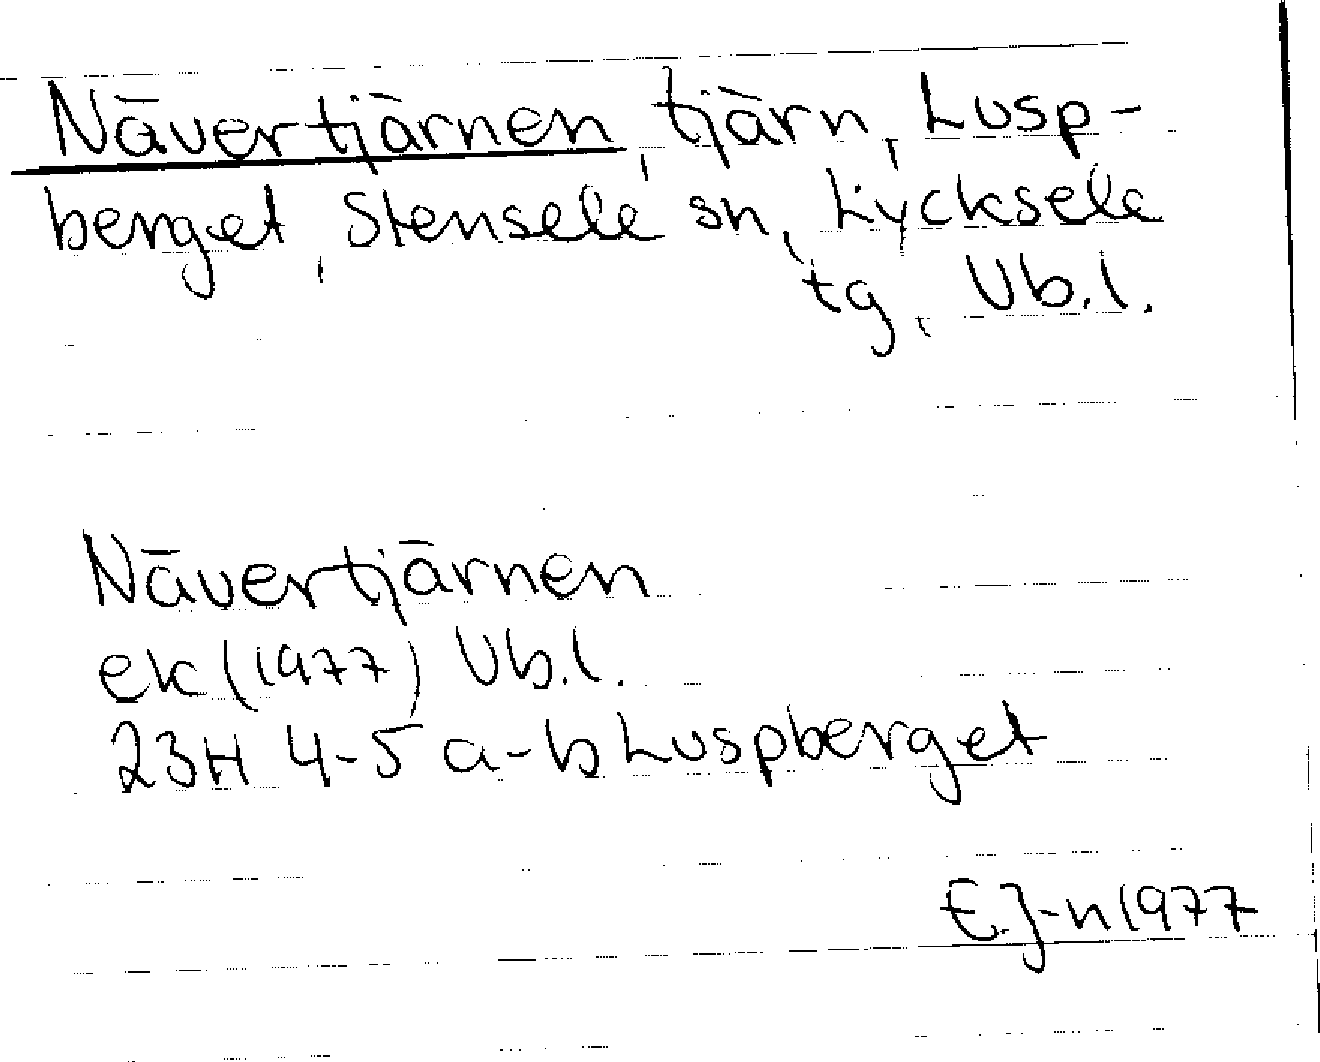 Nävertjärnen, tjärn, Lusp-
berget, Stensele sn, Lycksele
tg, Vb.l.
Nävertjärnen
ek (1977) Vb.l.
23H 4-5 a-b Luspberget
E.J-n 1977